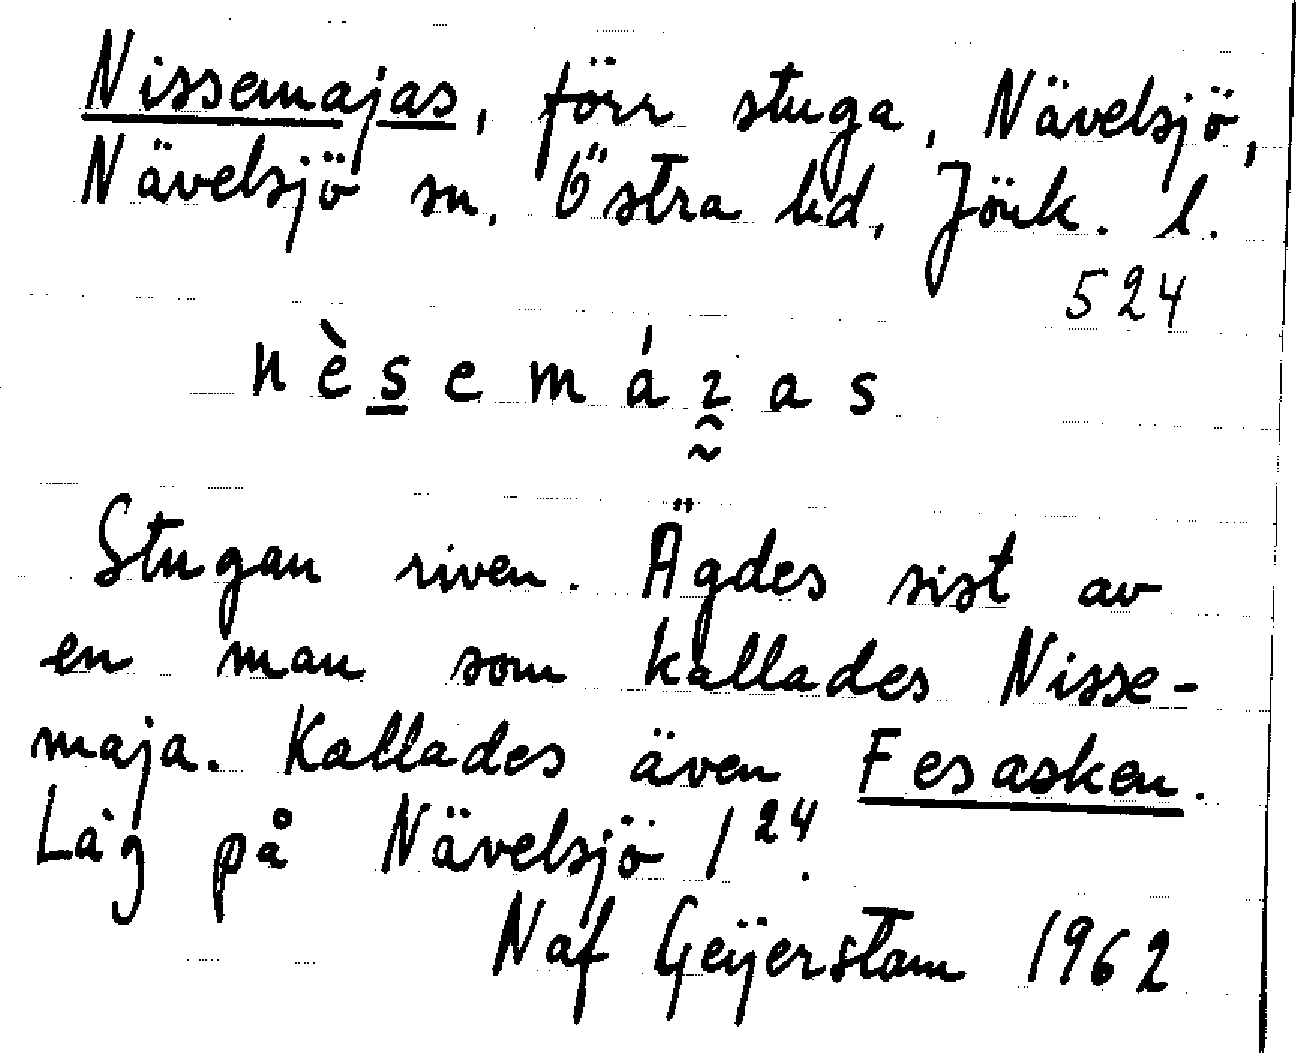 Nissemajas, förr stuga, Nävelsjö,
Nävelsjö sn, Östra hd, Jönk. l.
524
n è s e m á ɀ a s
Stugan riven. Ägdes sist av
en man som kallades Nisse-
maja. Kallades även Fesasken.
Låg på Nävelsjö 1²⁴.
Naf Geijerstam 1962